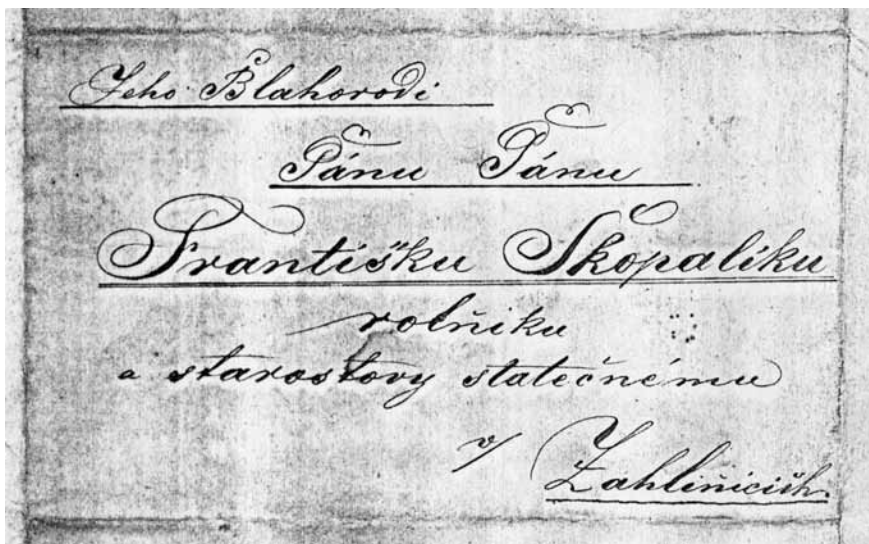 Jeho Blahorodi
Pánu Pánu
Františku Skopaliku
rolňiku
a starostovy statečnému
v/ Zahliňicich.